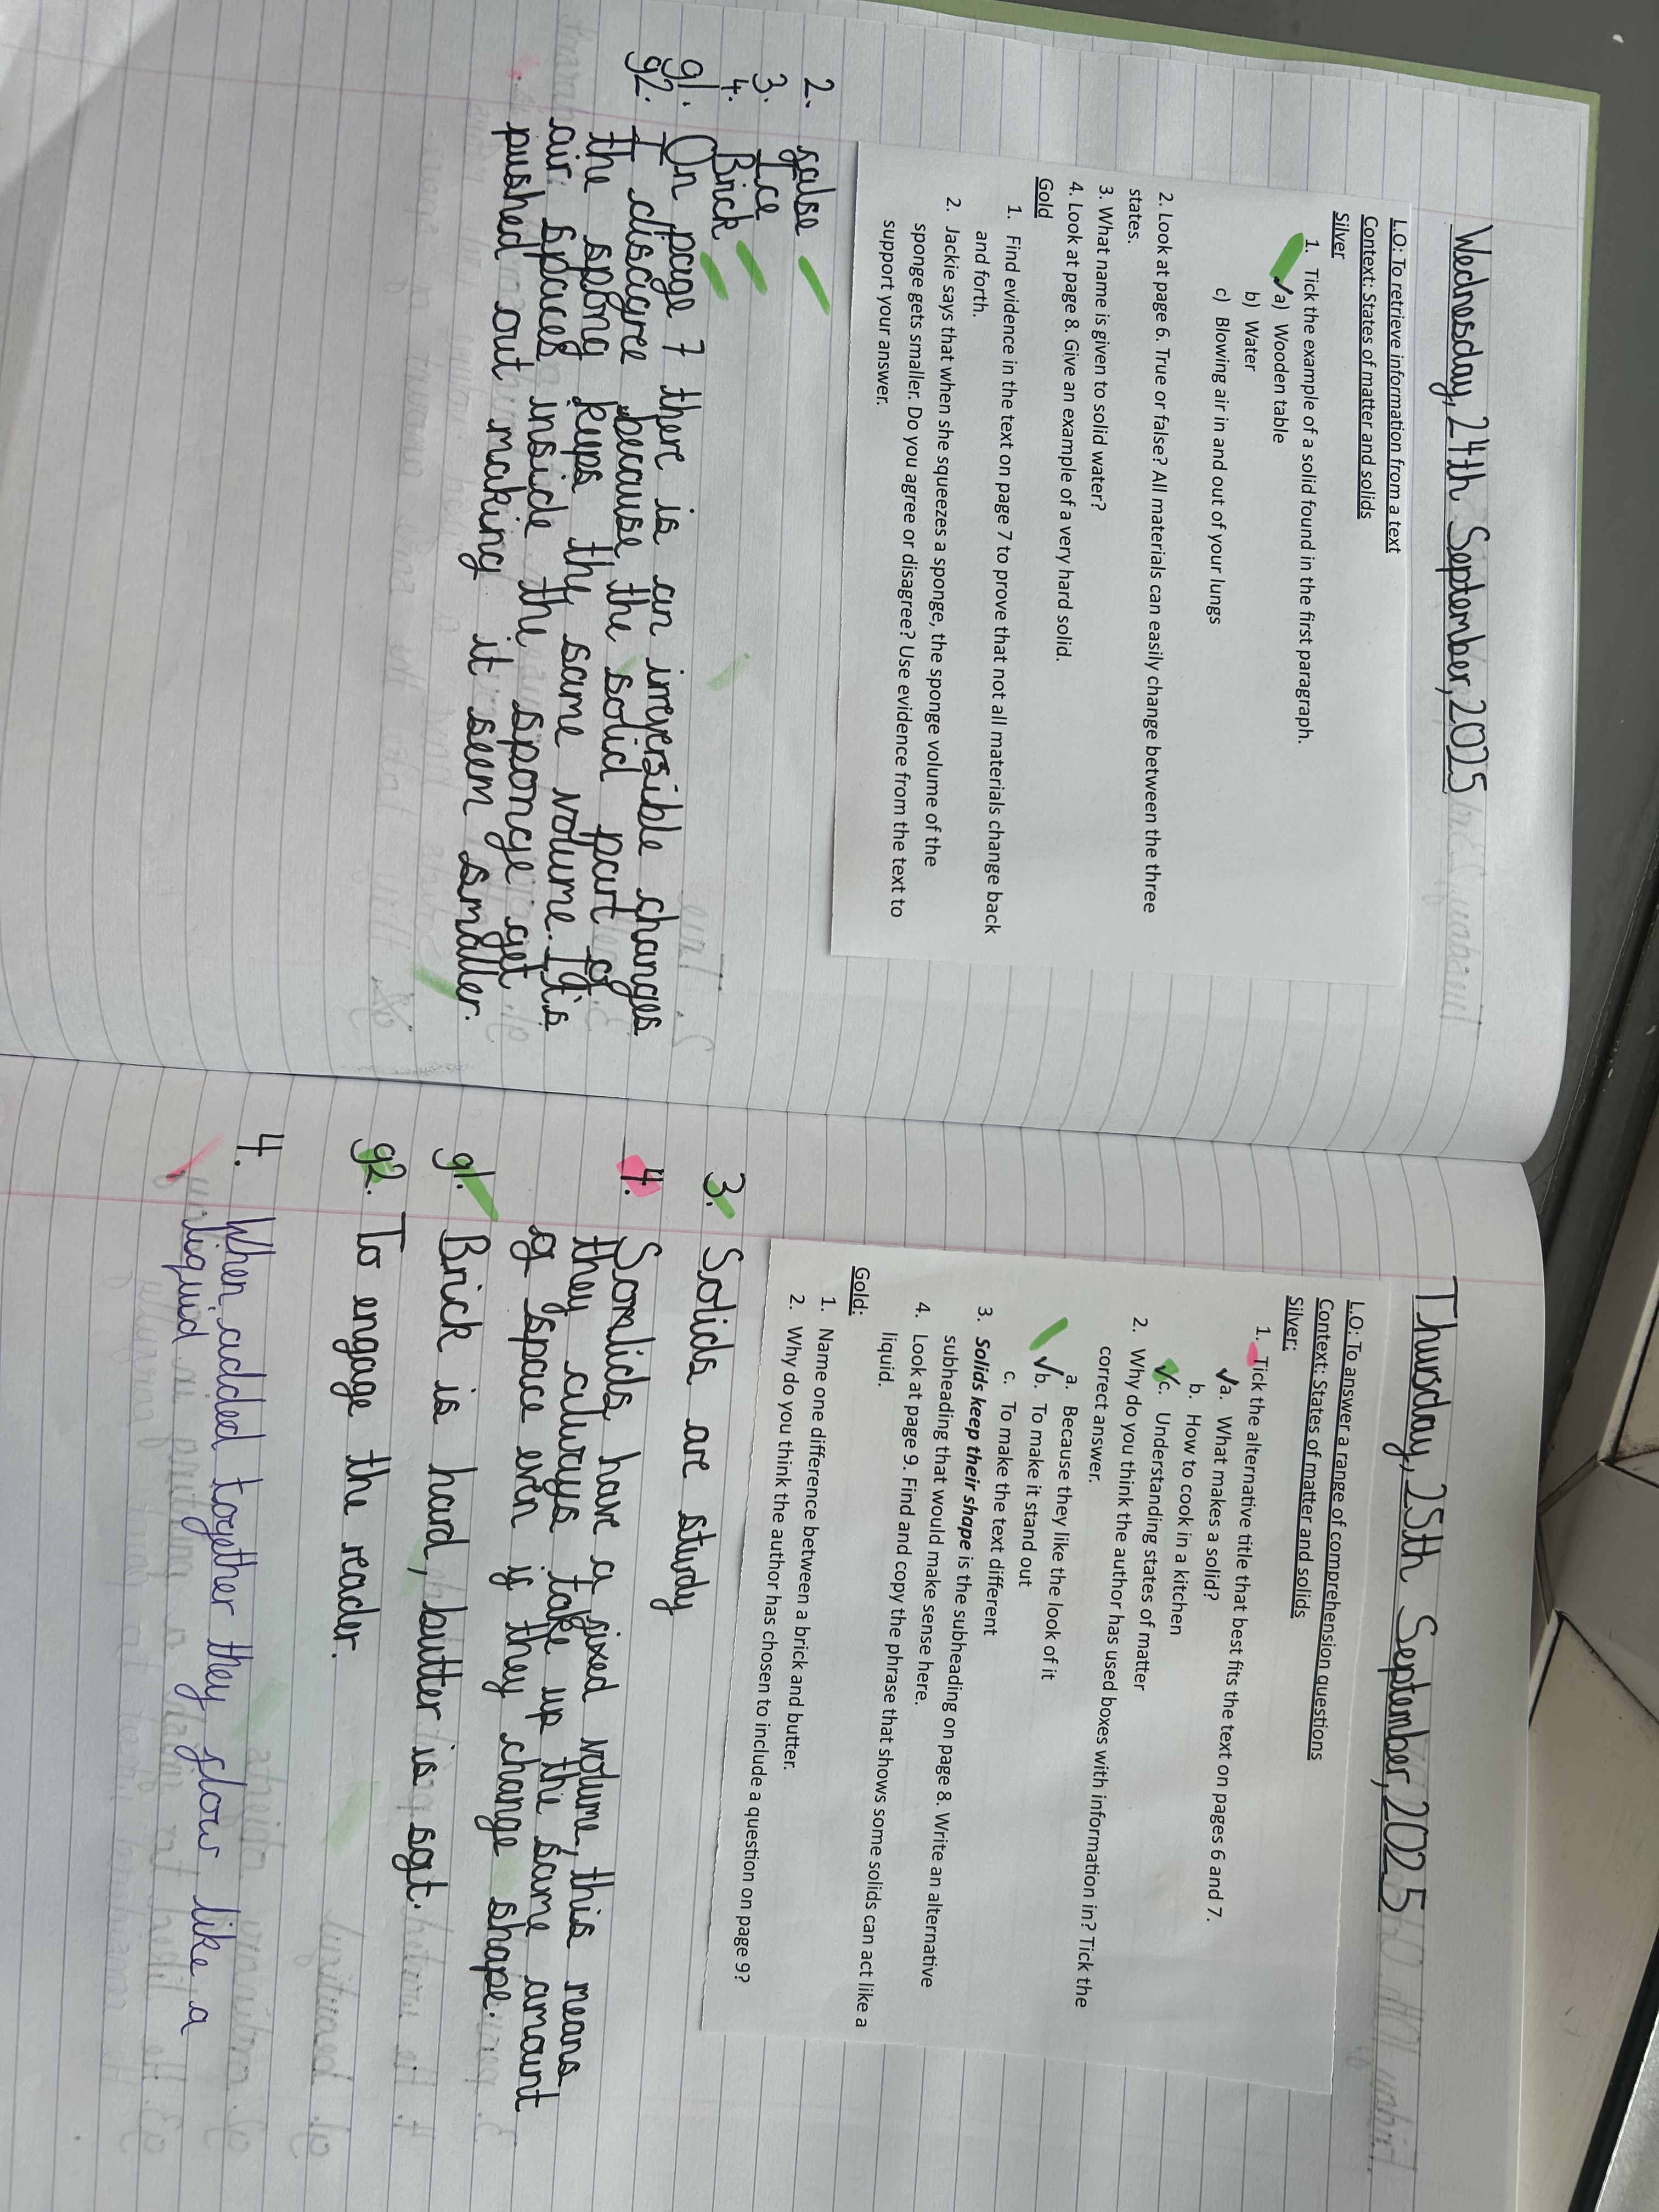 Wednesday, 24th September, 2025
L.O: To retrieve information from a text
Context: States of matter and solids
Silver
1. Tick the example of a solid found in the first paragraph.
✓a) Wooden table
b) Water
c) Blowing air in and out of your lungs
2. Look at page 6. True or false? All materials can easily change between the three
states.
3. What name is given to solid water?
4. Look at page 8. Give an example of a very hard solid.
Gold
1. Find evidence in the text on page 7 to prove that not all materials change back
and forth.
2. Jackie says that when she squeezes a sponge, the sponge volume of the
sponge gets smaller. Do you agree or disagree? Use evidence from the text to
support your answer.
2. false
3. Ice
4. Brick
g1. On page 7 there is an irreversible changes
g2. I disagree because the solid part of
the spong keeps the same volume. It's
air spaces inside the sponge get
pushed out making it seem smaller.
Thursday, 25th September, 2025
L.O: To answer a range of comprehension questions
Context: States of matter and solids
Silver:
1. Tick the alternative title that best fits the text on pages 6 and 7.
✓a. What makes a solid?
b. How to cook in a kitchen
✓c. Understanding states of matter
2. Why do you think the author has used boxes with information in? Tick the
correct answer.
a. Because they like the look of it
✓b. To make it stand out
c. To make the text different
3. Solids keep their shape is the subheading on page 8. Write an alternative
subheading that would make sense here.
4. Look at page 9. Find and copy the phrase that shows some solids can act like a
liquid.
Gold:
1. Name one difference between a brick and butter.
2. Why do you think the author has chosen to include a question on page 9?
3. Solids are study
4. Somlids have a fixed volume, this means
they always take up the same amount
of space even if they change shape.
g1. Brick is hard, butter is soft.
g2. To engage the reader.
4. When added together they flow like a
liquid